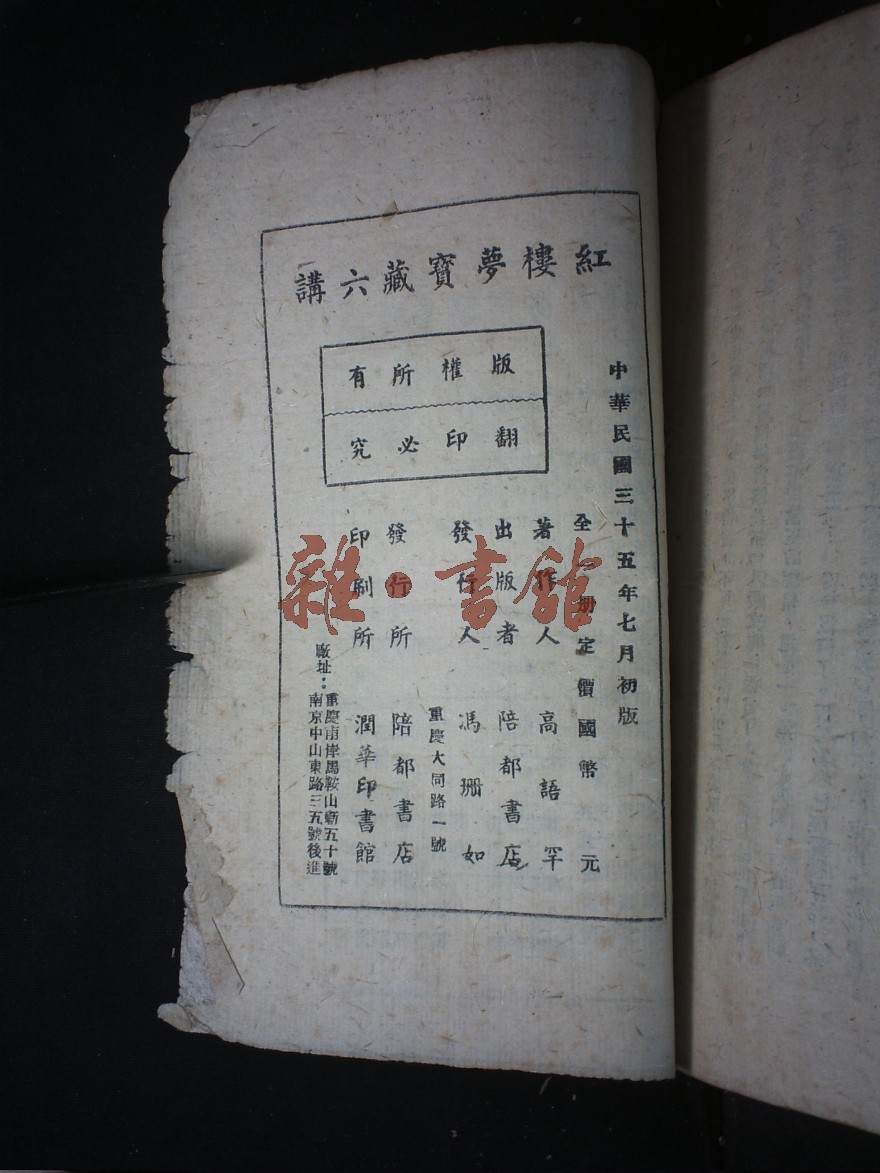 紅樓夢寶藏六講
版權所有
翻印必究
中華民國三十五年七月初版
全一册定價國幣　元
著作人　高語罕
出版者　陪都書店
發行人　馮珊如
重慶大同路一號
發行所　陪都書店
印刷所　潤華印書館
廠址：
重慶南岸馬鞍山新五十號
南京中山東路三五號後進
雜·書館